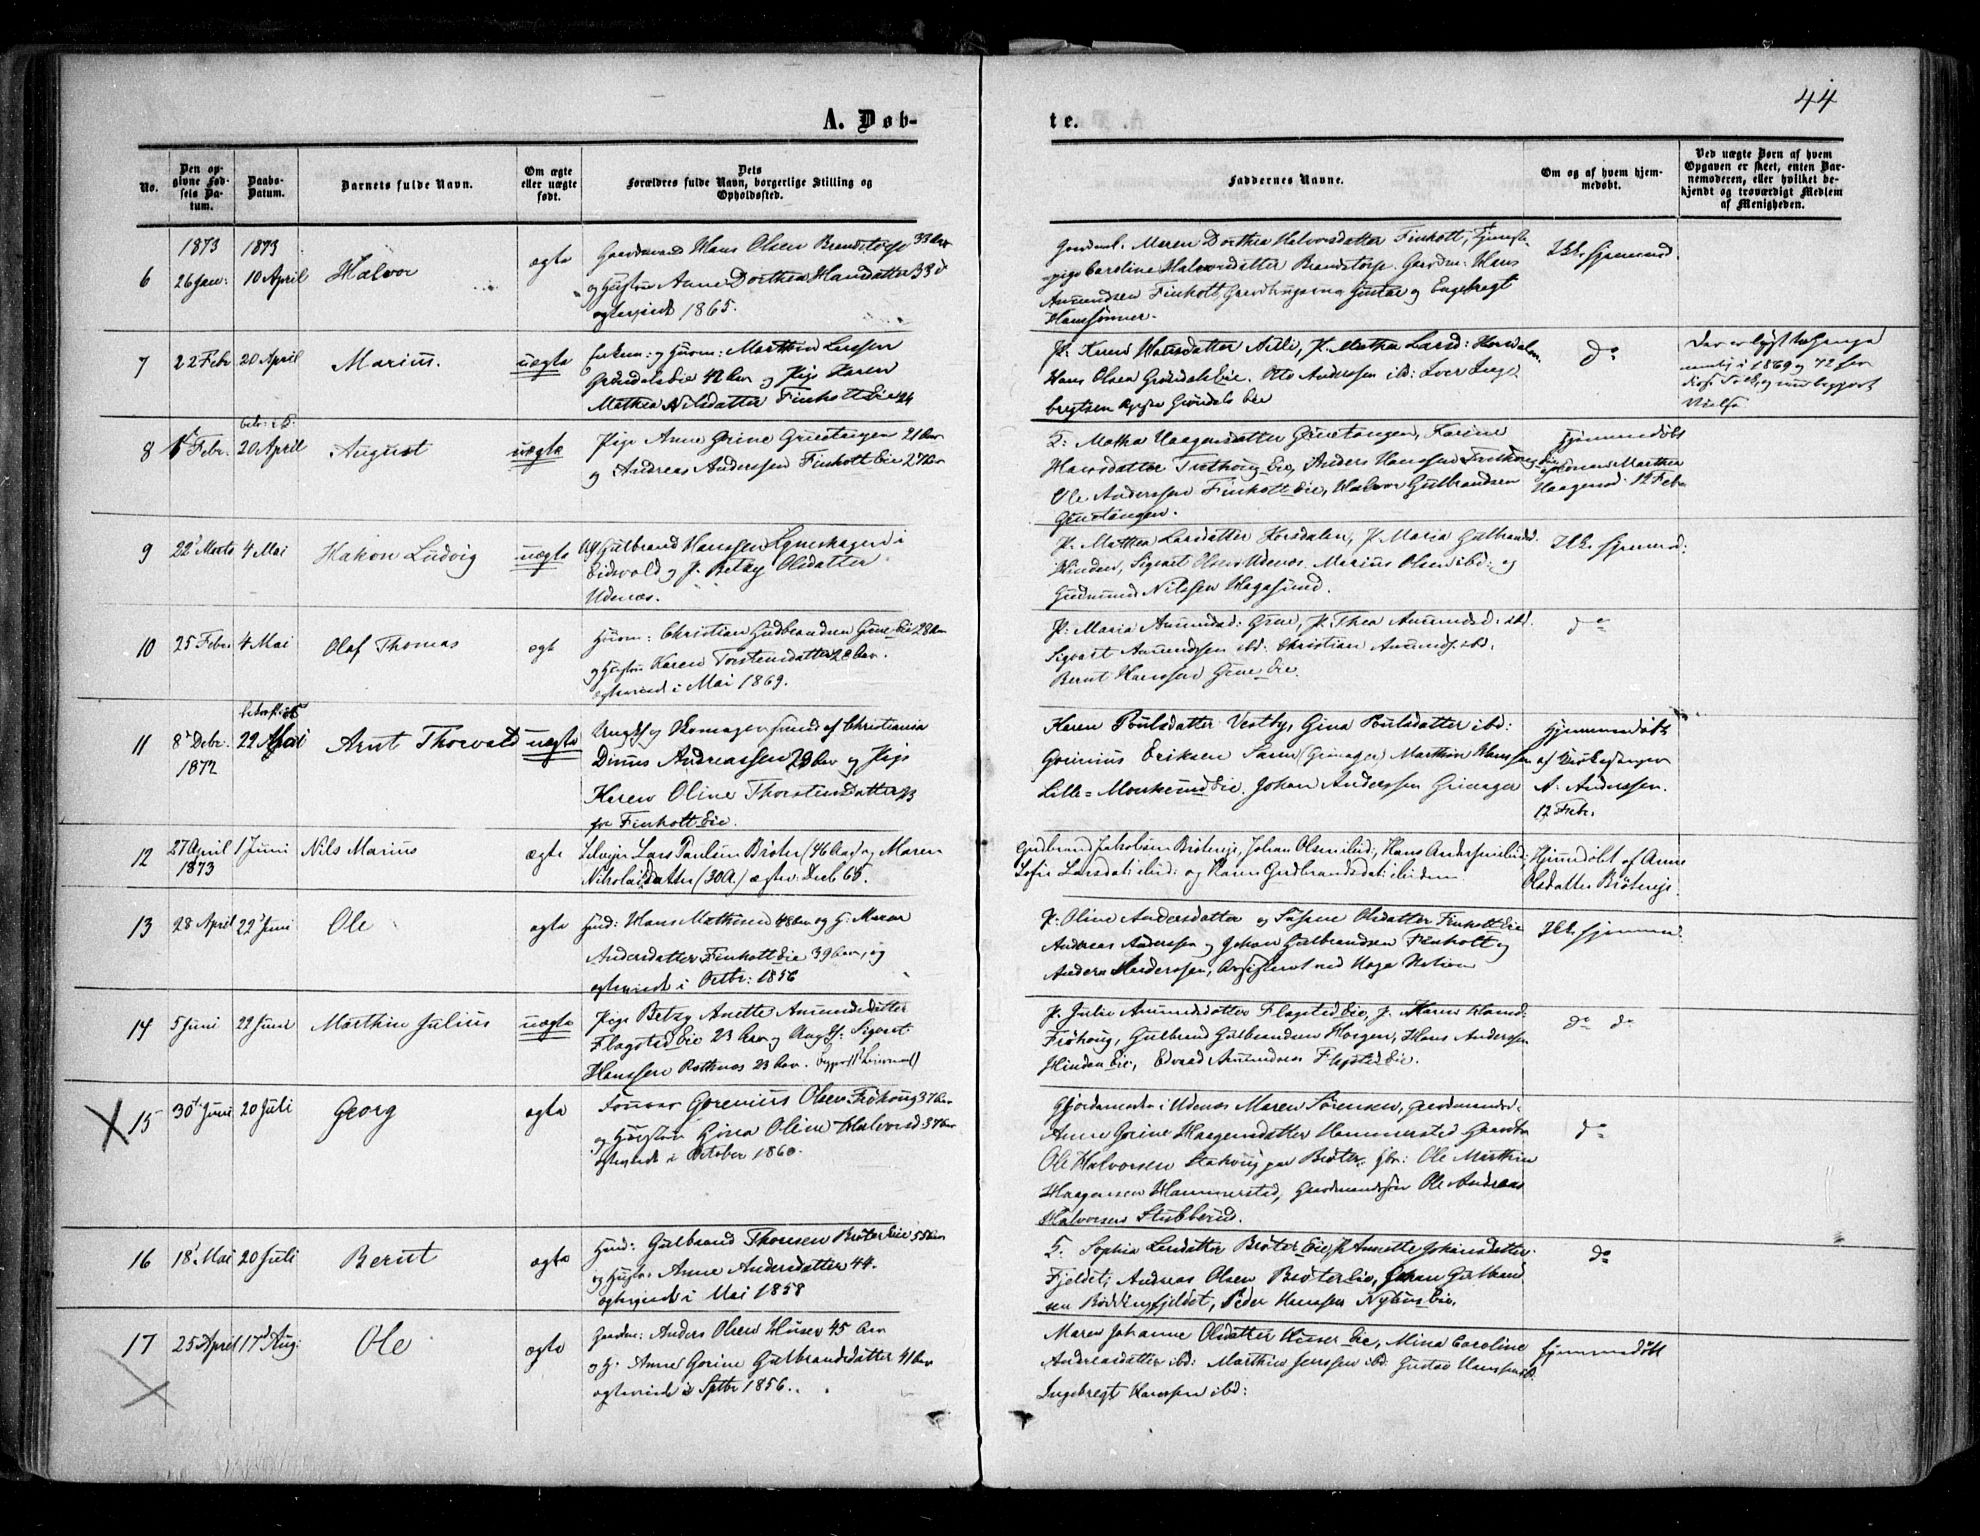 44
A. Døb-
te.
No.
Den op-
givne Fød-
sels Da-
tum.
Daabs-
Datum.
Barnets fulde Navn.
Om ægte
eller uægte
født.
Dets
Forældres fulde Navn, borgerlige Stilling og
Opholdssted.
Faddernes Navne.
Om og af hvem hjem-
medøbt.
Ved uægte Børn af hvem
Opgaven er skeet, enten Bar-
nemoderen, eller hvilket be-
kjendt og troværdigt Medlem
af Menigheden.
1873 1873
6 26 Jan: 10 April Halvor ægte
Gaardmand Hans Olsen Brandstorp 33 Aar
og Hustru Anne Dorthea Hansdatter 33 d
ægteviede 1865.
Maren Dorthea Halvorsdatter Finholt, Tjeneste-
pige Caroline Halvorsdatter Brandstorp. Gaardm: Hans
Amundsen Finholt, Gustav og Engebregt
Hanssønner.
Ikke hjemmed.
7 22 Febr 20 April Marius. uægte
Enkem: og Huusm: Marthin Larsen
Grøndalseie 42 Aar og Pige Karen
Mathea Nilsdatter Finholt Eie 24
P: Karen Hansdatter Nilli, P. Mathea Larsd: Horsdalen
Hans Olsen Grøndals Eie. Otto Anderssen ibd: Iver Inge-
brigtsen Grøndals Eie
do
1869 og 72
8 Febr. 20 April August uægte
Pige Anne Gorine Gruetangen 21 Aar
og Andreas Anderssen Finholt Eie 27 Aar
Martha Haagensdatter Gruetangen, Karine
Hansdatter Eie, Anders Hanssen
Ole Anderssen Finholt Eie, Halvor Gulbrandsen
Gruetangen.
Hjemmedøbt
af Konen Marthea
Haagensd. 12 Febr
9 22 Marts 4 Mai Hakon Ludvig uægte
Ug Gulbrand Hanssen i
Eidsvold og P. Betzy Olsdatter
Udenæs.
P: Mathea Larsdatter Horsdalen, P. Maria Gulbrandsd.
Hinden, Sigvart Olsen Udenæs. Marius Olsen ibd: og
Gudmund Nilssen Hagasund.
Ikke hjemmed:
10 25 Febr. 4 Mai Olaf Thomas ægt
Huusm: Christian Gudbrandsen Grue Eie 28 Aar
og Hustru Karen Torstensdatter 28 Aar.
ægteviede i Mai 1869.
P: Maria Amundsd: Grue, P. Thea Amundsd: ibd.
Sigvart Amundssen ibd: Christian Amunds. ibd.
Bernt Hanssen Grue Eie.
do
11 8 Debr. 1872 22 April Arnt Thorvald uægte
Ungk og Skomagersvend af Christiania
Dinus Andreassen 29 Aar og Pige
Karen Oline Thorstensdatter 23
fra Finholt Eie.
Karen Poulsdatter Vestby, Gina Poulsdatter ibd:
Gorinius Eriksen (Grinager) Marthin Hanssen
Lille=Morkerud Eie. Johan Anderssen Grinager
Hjemmedøbt
af Kirkesanger
A. Anderssen.
12 Febr.
12 27 April 1873 1 Juni Nils Marius ægte
Selvejer Lars Paulsen Brøter (46 Aar) og Maren
Nikolaisdatter (30 A.) ægtev. Decb 65.
Gudbrand Jakobsen Brøterejet, Johan Olsen ibid; Hans Andersen ibid;
Sofie Larsdat. ibid: og Karen Gudbrandsdat. ibidem
Hjemdøbt af Anne
Olsdatter Brøterejet.
13 28 April 22 Juni Ole ægte
Hmd: Hans Mathisen 48 Aar og H. Maren
Andersdatter Finholt Eie 39 Aar, og
ægteviede i Octbr: 1856
P: Oline Andersdatter og Olsdatter Finholt Eie
Andreas Anderssen og Johan Gulbrandsen Finholt og
Anders Anderssen, ved Haga Station
Ikke hjemmed:
14 5 Juni 22 Juni Marthin Julius uægte
Pige Betzy Anette Amundsdatter
Flagsted Eie 23 Aar og Ungk: Sigvart
Hanssen Rothnæs 23 Aar.
P. Julie Amundsdatter Flagsted Eie, P. Maren Hansd:
Frøhoug, Gulbrand Gulbrandsen Haagen, Hans Anderssen
Hinden Eie, Edvard Amundssen Flagsted Eie.
do do
15 30 Juni 20 Juli Georg ægte
Gorenius Olsen Frøhoug 37 Aar
og Hustru Gina Oline Halvorsd: 37 Aar
ægteviede i October 1860.
Gjordemoder i Udenæs Maren Sørensen,
Anne Gorine Haagensdatter Hammersted
Ole Halvorsen Brøter. Ole Marthin
Haagensen Hammersted, Gaardmandssøn Ole Andreas
Halvorsen Stubberud.
do
16 18 Mai 20 Juli Bernt ægte
Hmd: Gulbrand Thomsen Brøter Eie 55 Aar
og Hustru Anne Andersdatter 44.
ægteviede i Mai 1858
Sophie Larsdatter Brøter Eie, P. Annette Johansdatter
Fjeldet, Andreas Olsen Brøter Eie, Johan Gulbrand-
sen Røddingsfjeldet, Peder Hanssen Nyhus Eie.
do
17 25 April 17 Aug: Ole ægte
Gaardm: Anders Olsen Huser 45 Aar
og H. Anne Gorine Gulbrandsdatter 41 Aar
ægteviede i Sptbr 1856.
Maren Johanne Olsdatter Huser Eie, Mina Caroline
Andreasdatter ibd: Marthin Jenssen ibd: Gustav Hanssen ibd.
Ingebregt Hanssen ibd:
hjemmedøbt